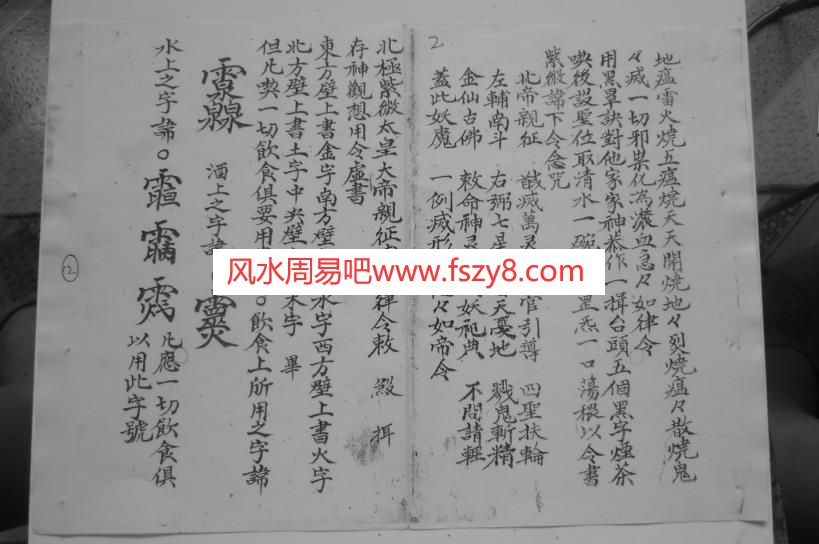 2
地瘟雷火燒五瘟燒天天開燒地々烈燒瘟々散燒鬼
々滅一切邪祟化為濃血急々如律令
用黑罩訣對他家家神恭作一揖台頭五個黑字煙茶
喫後設聖位取清水一碗 罡炁一口蕩穢以令書
紫微諱下令念咒
北帝親征 誠滅萬灵 官引導 四聖扶輪
左輔南斗 右弼七星 天憂地 戮鬼斬精
金仙古佛 敕命神灵 妖祀典 不問請輕
蓋此妖魔 一例滅形 々如帝令
北極紫微太皇大帝親征 律令敕 煞 揖
存神觀想用令虛書
東方壁上書金字南方壁 水字西方壁上書火字
北方壁上書土字中央壁 木字 畢
但凡喫一切飲食俱要用 。飲食上所用之字諱
酒上之字諱
水上之字諱。
凡應一切飲食俱
以用此字號
12
风水周易吧www.fszy8.com